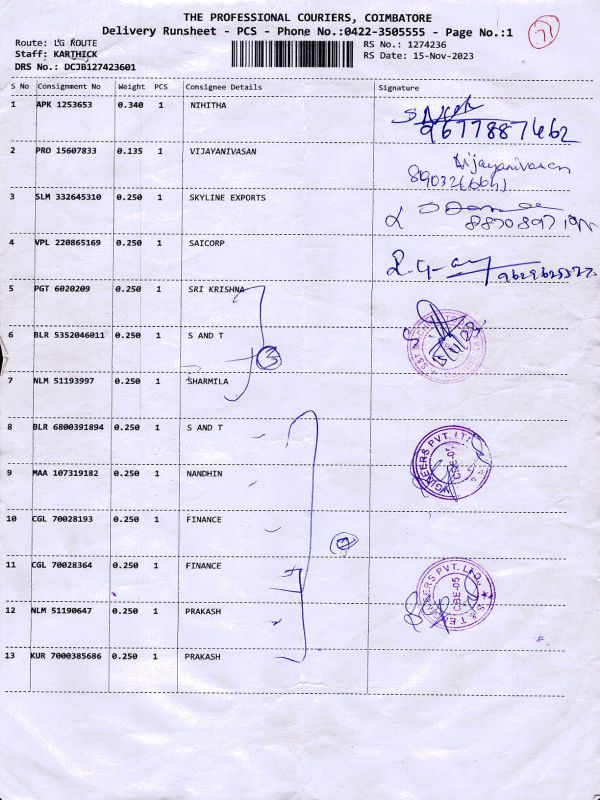 THE PROFESSIONAL COURIERS, COIMBATORE
Delivery Runsheet - PCS - Phone No.:0422-3505555 - Page No.:1
71
Route: L'G ROUTE
RS No.: 1274236
Staff: KARTHICK
RS Date: 15-Nov-2023
DRS No.: DCJB127423601
S No Consignment No Weight PCS Consignee Details Signature
1 APK 1253653 0.340 1 NIHITHA
9677887462
2 PRO 15607833 0.135 1 VIJAYANIVASAN Vijayanivasan
3 SLM 332645310 0.250 1 SKYLINE EXPORTS
4 VPL 220865169 0.250 1 SAICORP
5 PGT 6020209 0.250 1 SRI KRISHNA
6 BLR 5352046011 0.250 1 S AND T
3
7 NLM 51193997 0.250 1 SHARMILA
8 BLR 6800391894 0.250 1 S AND T
NGINEERS PVT. LTD.
CBE-05
9 MAA 107319182 0.250 1 NANDHIN
10 CGL 70028193 0.250 1 FINANCE
11 CGL 70028364 0.250 1 FINANCE
S & T ENGINEERS PVT. LTD.
CBE-05
12 NLM 51190647 0.250 1 PRAKASH
13 KUR 7000385686 0.250 1 PRAKASH